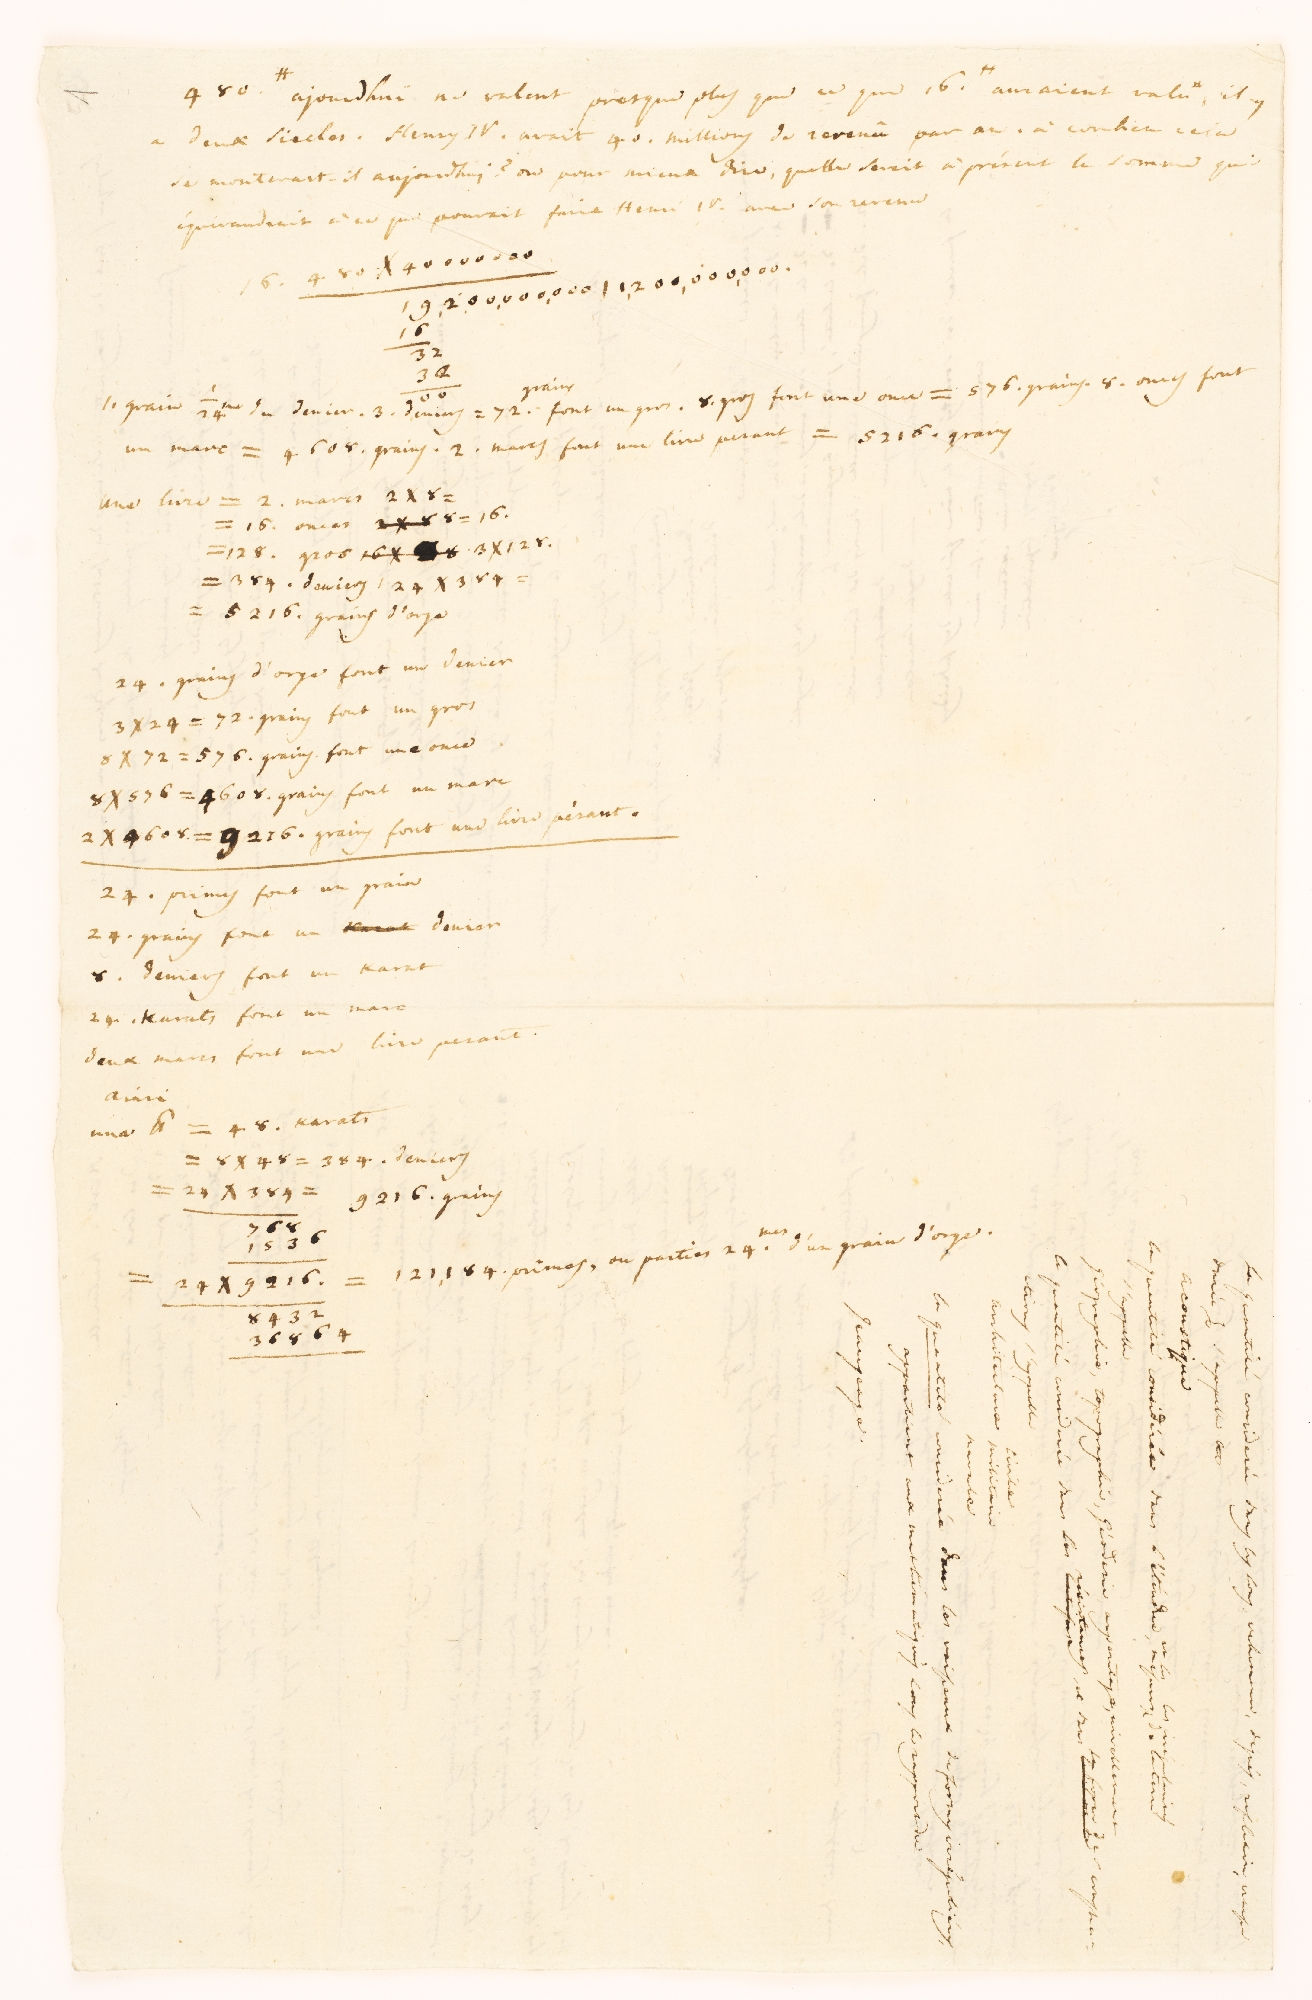 480.# ajourdhui ne valent presque plus que ce que 16.# auraient valu, il y
a deux siecles. Henry IV. avait 40. millions de revenu par an. à combien cela
se monterait-il aujourdhuy? ou pour mieux dire, quelle serait à présent la somme qui
équivaudrait à ce que pourrait faire Henri IV. avec son revenu
16. 480 X 40000000
19,200,000,000 | 1,200,000,000.
16
32
32
00
1. grain 1/24me du denier. 3. deniers = 72. grains font un gros. 8. gros font une once = 576. grains. 8. onces font
un marc = 4608. grains. 2. marcs font une livre pesant = 5216. grains
une livre = 2. marcs 2X8=
= 16. onces 2X8 8=16.
=128. gros 16X8 3X128.
= 384. deniers 24X384=
= 5216. grains d'orge
24. grains d'orge font un denier
3X24=72. grains font un gros
8X72=576. grains font une once
8X576=4608. grains font un marc
2X4608=9216. grains font une livre pésant.
24. primes font un grain
24. grains font un karat denier
8. deniers font un karat
24. karats font un marc
deux marcs font une livre pesant.
ainsi
une ℔ = 48. karats
= 8X48=384. deniers
= 24X384= 9216. grains
768
1536
= 24X9216. = 121,184. primes, ou parties 24.mes d'un grain d'orge.
8432
36864
La quantité considerée dans les sons, véhémence, degrés, reflexion,
durée & s'appelle
acoustique
la quantité considérée dans l'étendue,
s'appelle
géographie, topographie, Géodésie arpentage, nivellement
la quantité considerée dans les résistances et dans la force des construc=
tions s'appelle
architecture civile
militaire
navale
la quantité considerée dans les vaisseaux de formes irrégulières,
appartient aux mathématiques sous le rapport du
Jaugeage.